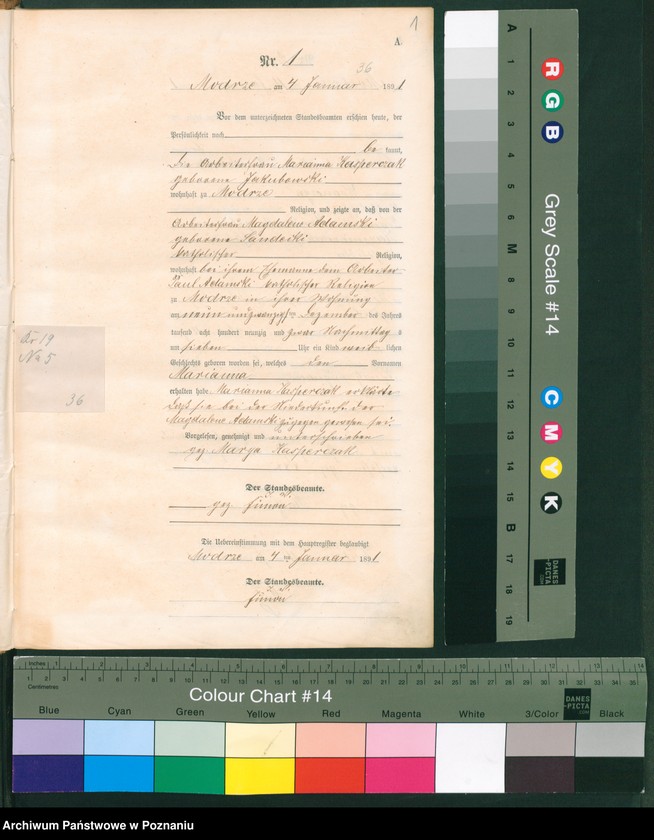 1
A
Nr. 1
36
Modrze am 4 Januar 1891
Vor dem unterzeichneten Standesbeamten erschien heute, der
Persönlichkeit nach
be kannt,
die Arbeiterfrau Marianna Kasperczak
geborene Jakubowski
wohnhaft zu Modrze
Religion, und zeigte an, daß von der
Arbeiterfrau Magdalene Adamski
geborene
katholischer Religion,
wohnhaft bei ihrem Ehemanne dem Arbeiter
Paul Adamski katholischer Religion
zu Modrze in ihrer Wohnung
am neun und zwanzigsten Dezember des Jahres
tausend acht hundert neunzig und zwar Nachmittag s
um sieben Uhr ein Kind weib lichen
Geschlechts geboren worden sei, welches den Vornamen
Marianna
erhalten habe. Marianna Kasperczak erklärte
daß sie bei der Niederkunft der
Magdalene Adamski zugegen gewesen sei.
Vorgelesen, genehmigt und unterschrieben
gez Marya Kasperczak
Der Standesbeamte.
gez. Simon
Die Uebereinstimmung mit dem Hauptregister beglaubigt
Modrze am 4 ten Januar 1891
Der Standesbeamte.
Simon
Kr 19
No 5
36
A
1
2
3
4
5
6
M
8
9
10
11
12
13
14
15
B
17
18
19
R
G
B
Grey Scale #14
C
M
Y
K
DANES
-PICTA
.COM
Inches 1 2 3 4 5 6 7 8 9 10 11 12 13 14
1 2 3 4 5 6 7 8 9 10 11 12 13 14 15 16 17 18 19 20 21 22 23 24 25 26 27 28 29 30 31 32 33 34 35
Centimetres
Colour Chart #14
DANES
-PICTA
.COM
Blue Cyan Green Yellow Red Magenta White 3/Color Black
Archiwum Państwowe w Poznaniu